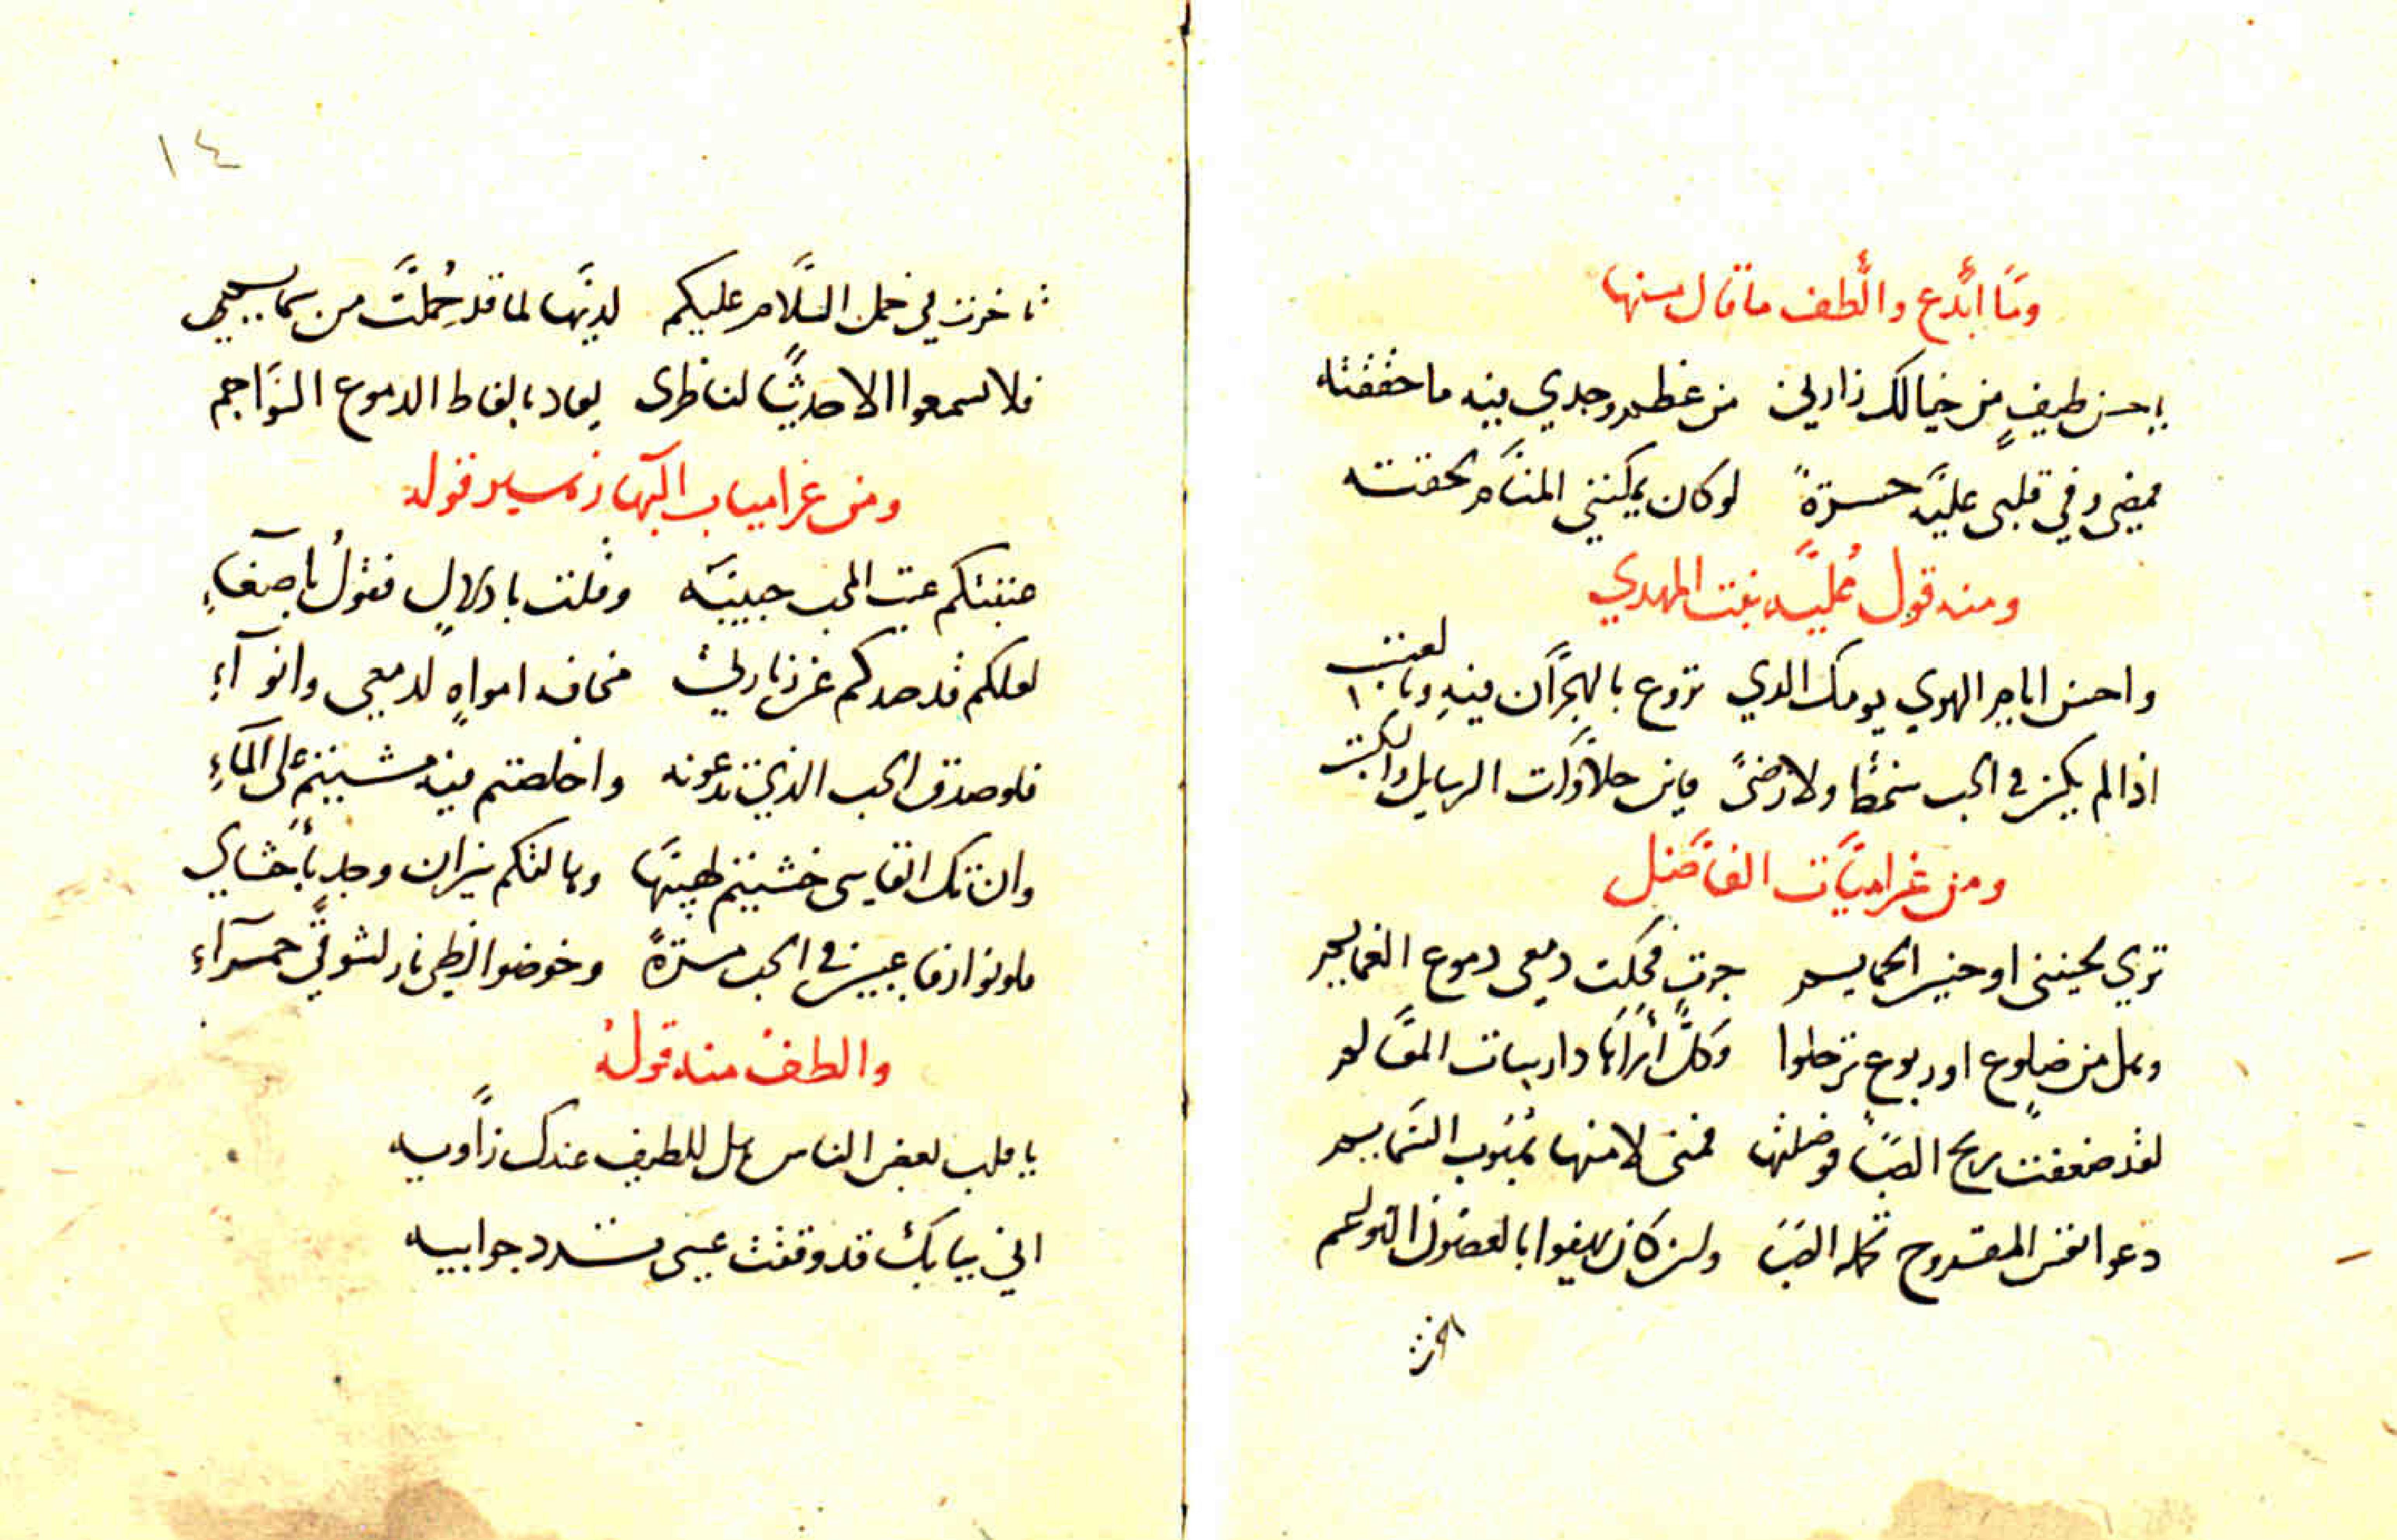 وما ابدع والطف ما قال منها
يا حسن طيف من خيالك زارني من عظم وجدي فيه ما حققته
فمضى وفي قلبي عليه حسرة لو كان يمكنني المنام لحقته
ومنه قول علية بنت المهدي
واحسن ايام الهوي يومك الذي تروع بالهجران فيه وبالعتب
اذا لم يكن في الحب سخطا ولا رضى فاين حلاوات الرسايل والكتب
ومن غراميات الفاضل
تري لحنيني او حنين الحمايم جرت فحكت دمعي دموع الغمايم
وهل من ضلوع او ربوع ترحلوا وكل أراها دارسات المعالم
لقد ضعفت ريح الصبا فوصلتها فمنى لا منها هبوب السمايم
دعوا نفس المقروح تحمله الصبا ولن كان يهفوا بالغصون النواعم
تاخرت في حمل السلام عليكم لديها لما قد حملت من سمايمي
فلا تسمعوا الا حديثا لناظرى يعاد بالفاظ الدموع السواجم
ومن غراميات البها زهير قوله
عتبتكم عتب المحب حبيبه وقلت بادلال فقول باصغاء
لعلكم قد صدكم عن زيارتي مخافه امواه لدمعي وانوآء
فلو صدق الحب الذي تدعونه واخلصتم فيه مشيتم على المآء
وان تك انفاسى خشيتم لهيبها وهالتكم نيران وجد بأحشاي
فكونوا رفاعيين في الحب مرة وخوضوا لظى نار لشوقي حمرآء
والطف منه قوله
يا قلب بعض الناس هل للطيف عندك زاويه
اني ببابك قد وقفت عسى ترد جوابيه